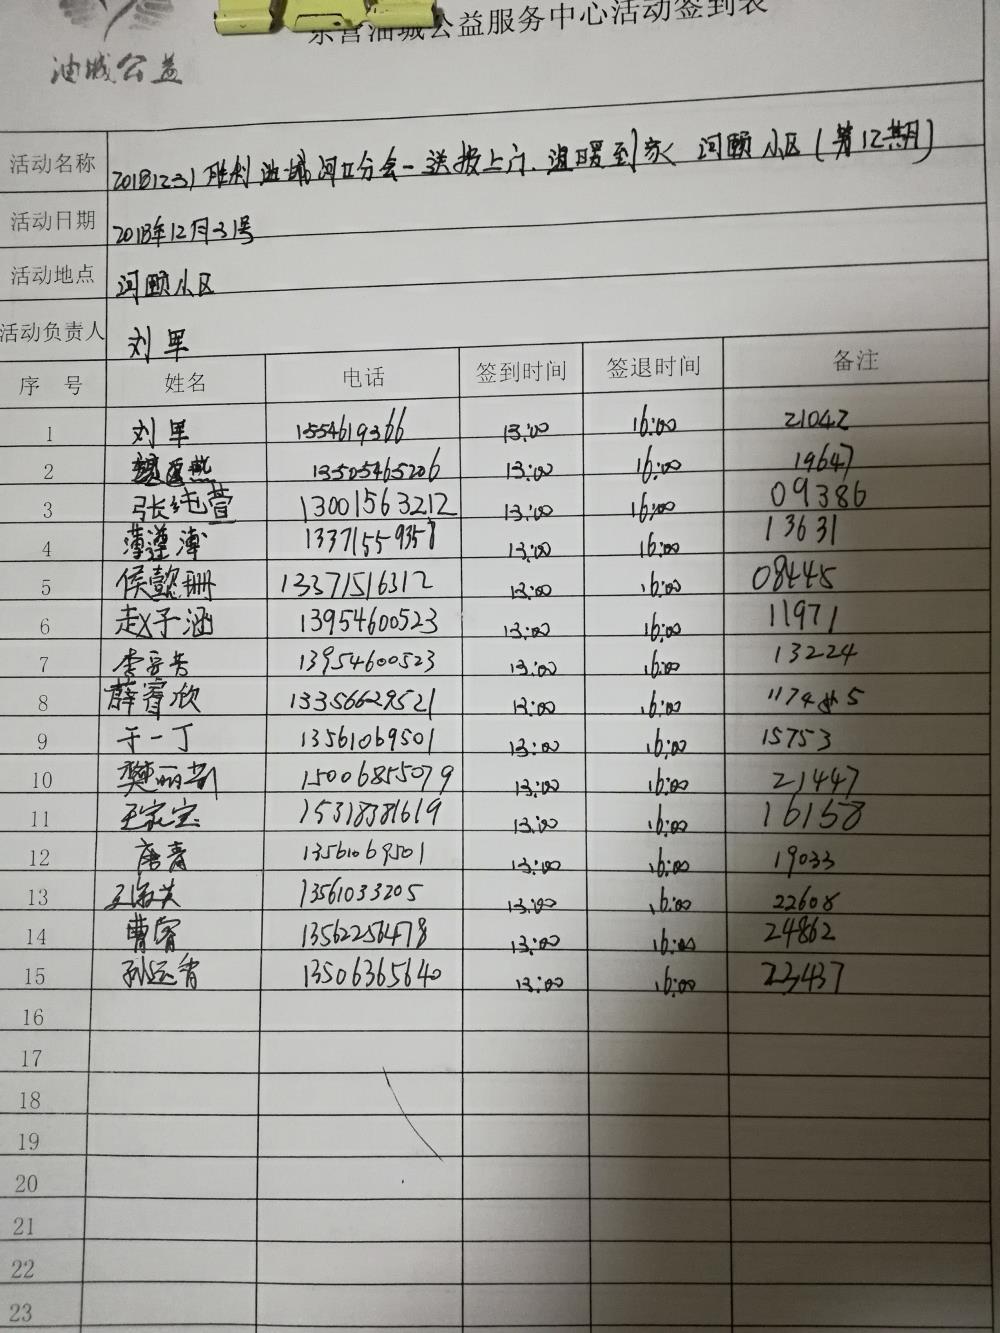 东营油城公益服务中心活动签到表
油城公益
活动名称 20181231胜利油城河口分会一送报上门、温暖到家 河颐小区(第12期)
活动日期 2018年12月31号
活动地点 河颐小区
活动负责人 刘军
序 号 姓名 电话 签到时间 签退时间 备注
1 刘军 1554619366 13:00 16:00 21042
2 13505465206 13:00 16:00 19647
3 张纯萱 13001563212 13:00 16:00 09386
4 13371559358 13:00 16:00 13631
5 侯懿珊 13371516312 13:00 16:00 08445
6 赵子涵 13954600523 13:00 16:00 11971
7 13954600523 13:00 16:00 13224
8 薛睿欣 13356629521 13:00 16:00
9 于一丁 13561069501 13:00 16:00 15753
10 樊丽 15006855079 13:00 16:00 21447
11 王家宝 15318381619 13:00 16:00 16158
12 唐青 13561069501 13:00 16:00 19033
13 13561033205 13:00 16:00 22608
14 曹 13562256478 13:00 16:00 24862
15 孙运 13506365640 13:00 16:00 22437
16
17
18
19
20
21
22
23